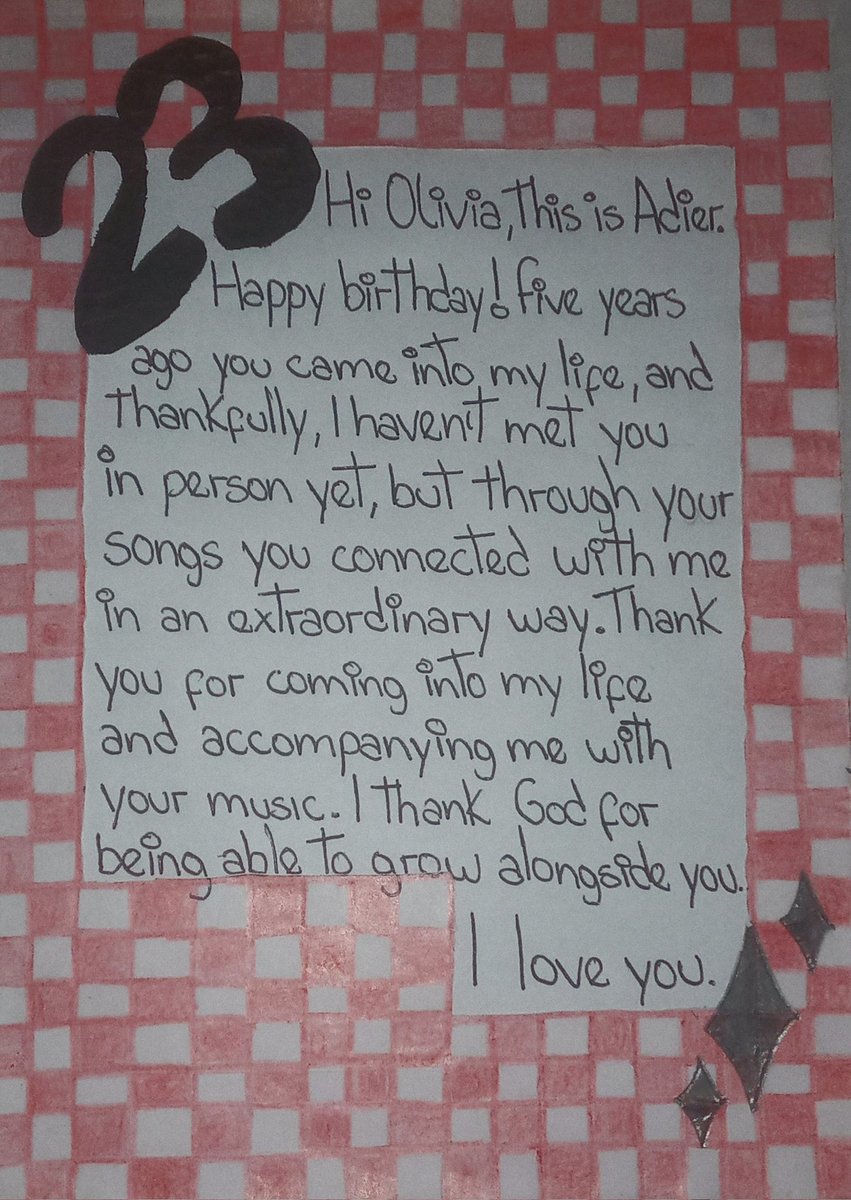 23
Hi Olivia, This is Adier.
Happy birthday! five years
ago you came into my life, and
thankfully, I haven't met you
in person yet, but through your
songs you connected with me
in an extraordinary way. Thank
you for coming into my life
and accompanying me with
your music. I thank God for
being able to grow alongside you.
I love you.